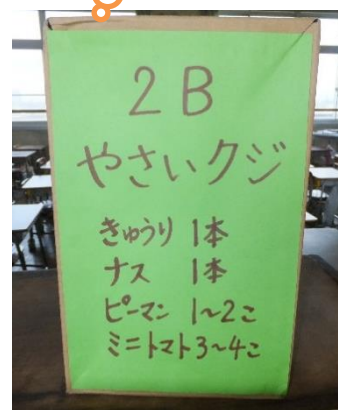 2B
やさいクジ
きゅうり 1本
ナス 1本
ピーマン 1~2こ
ミニトマト3~4こ